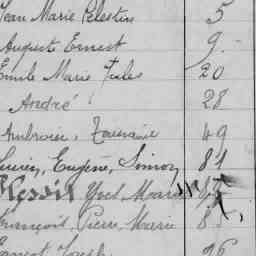 Jean Marie Célestin 5
Auguste Ernest 9
Emile Marie Jules 20
André 28
Ambroise, Toussaine 49
Lucien, Eugène, Simon 81
Plessis Yves Marie
François, Pierre, Marie 85
Ernest Joseph 96